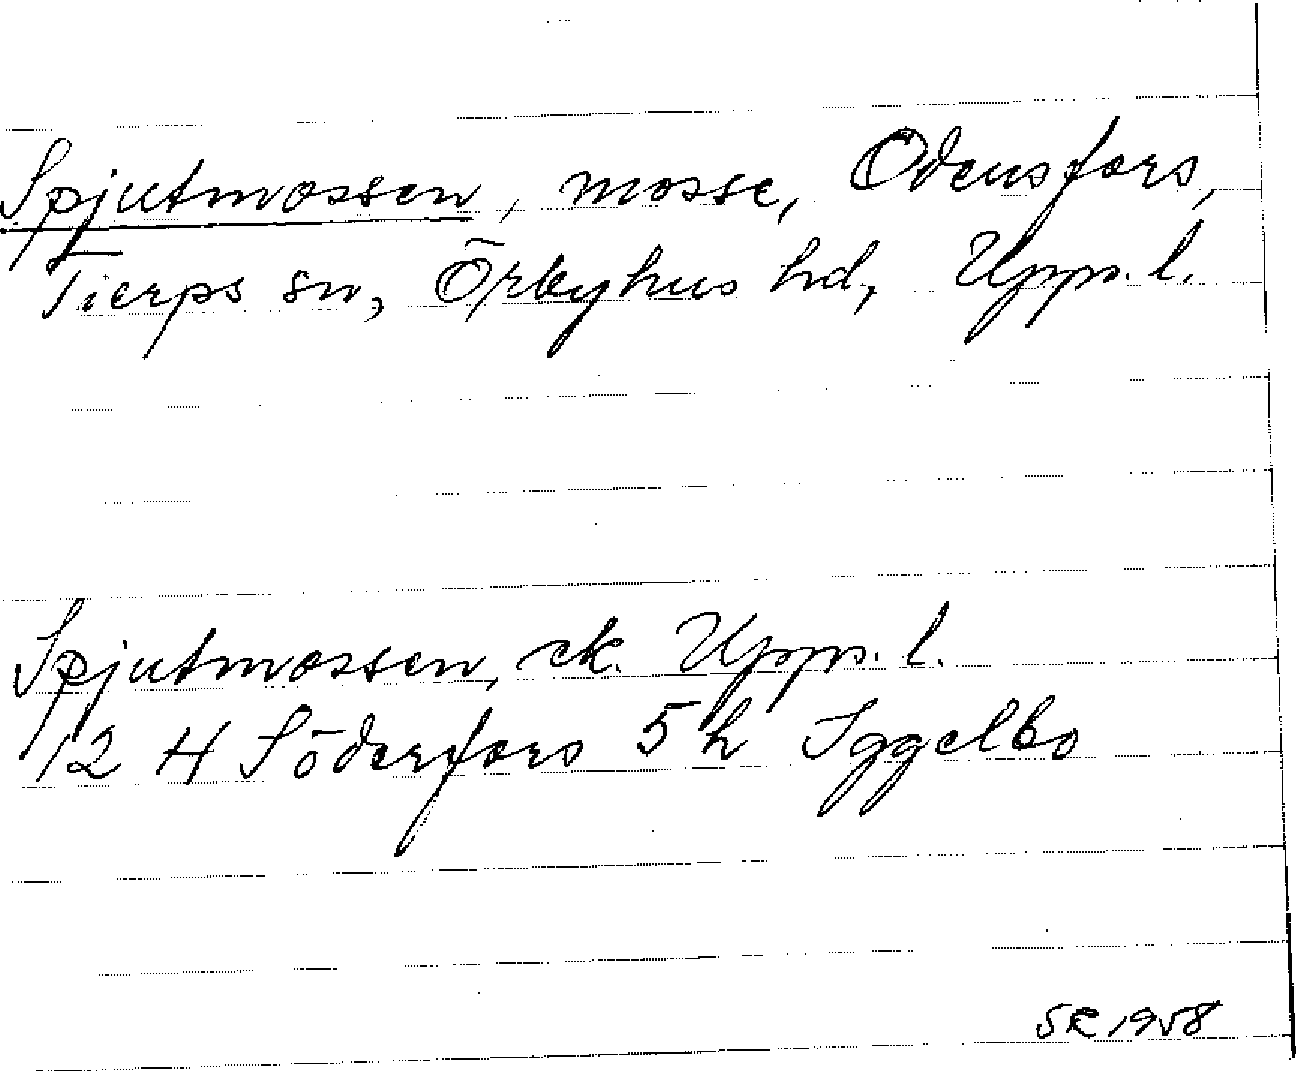 Spjutmossen, mosse, Odensfors,
Tierps sn, Örbyhus hd, Upps. l.
Spjutmossen, ek. Upps. l.
12 H Söderfors 5 h Iggelbo
SR 1958